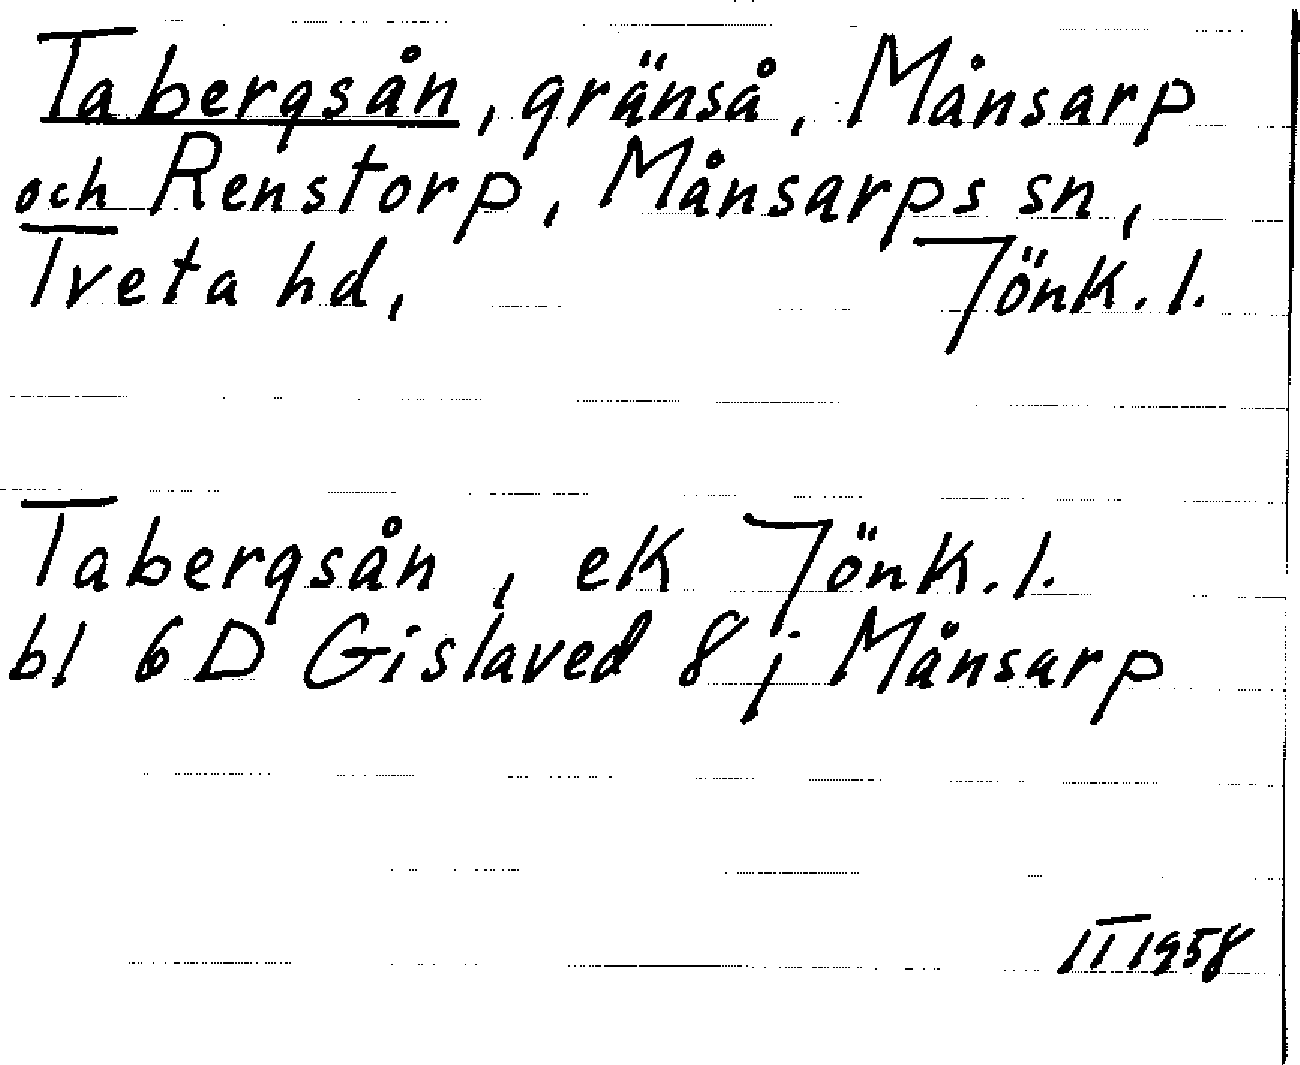 Tabergsån, gränså, Månsarp
och Renstorp, Månsarps sn,
Tveta hd, Jönk. l.
Tabergsån, ek Jönk. l.
bl 6D Gislaved 8j Månsarp
IT 1958